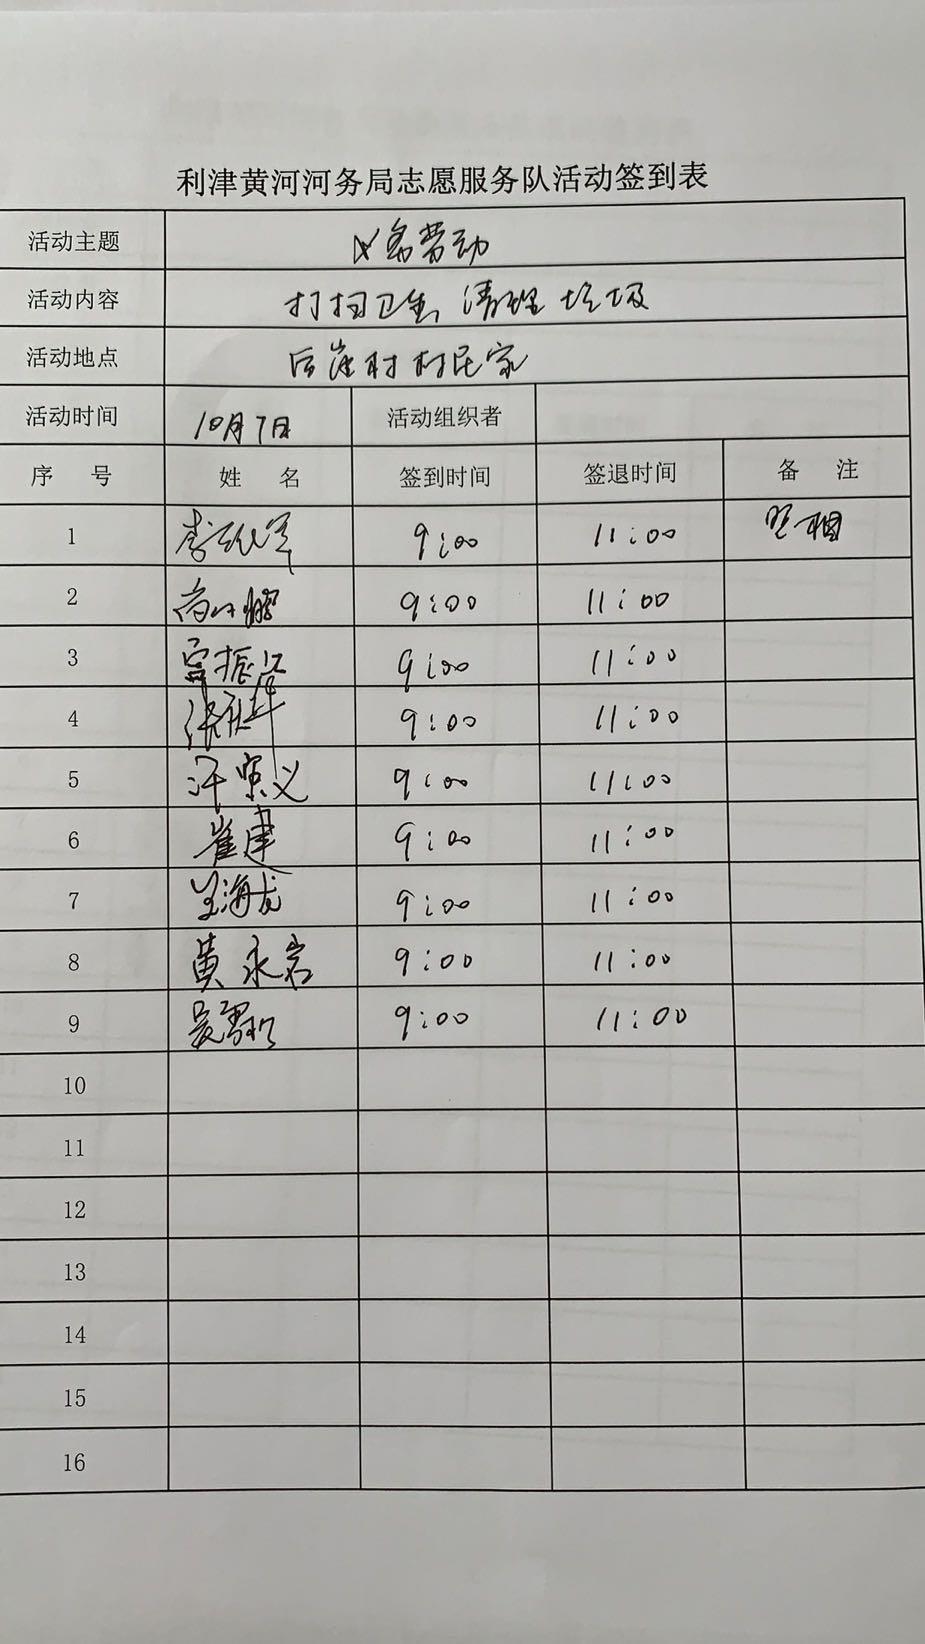 利津黄河河务局志愿服务队活动签到表
活动主题 义务劳动
活动内容 打扫卫生,清理垃圾
活动地点 后崖村村民家
活动时间 10月7日 活动组织者
序 号 姓 名 签到时间 签退时间 备 注
1 9:00 11:00
2 9:00 11:00
3 9:00 11:00
4 9:00 11:00
5 9:00 11:00
6 崔建 9:00 11:00
7 王海龙 9:00 11:00
8 黄永岩 9:00 11:00
9 9:00 11:00
10
11
12
13
14
15
16